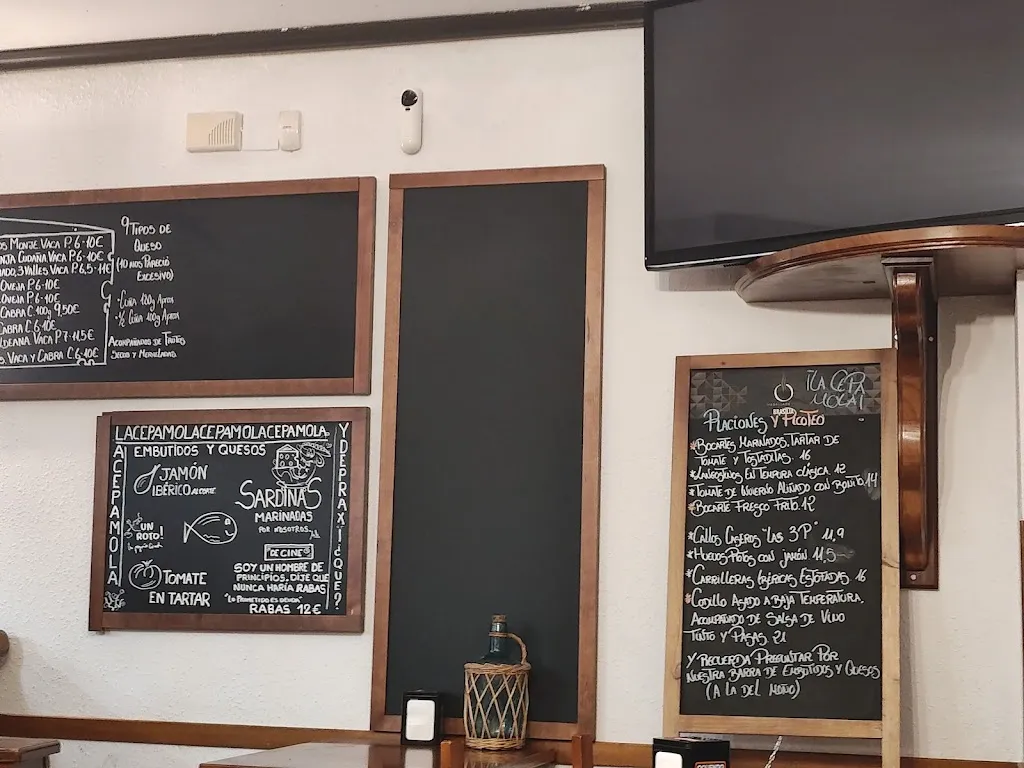 OS MONJE VACA P.6·10€
NJA CUDAÑA VACA P.6·10€
ADO, 3 VALLES VACA P.6,5·11€
OVEJA P.6·10€
OVEJA P.6·10€
CABRA C.100g 9,50€
CABRA C.6·10€
LDEANA VACA P.7·11,5€
S VACA Y CABRA C.6·10€
9 TIPOS DE
QUESO
(10 NOS PARECIÓ
EXCESIVO)
·CUÑA 120g APROX
·½ CUÑA 100g APROX
ACOMPAÑADOS DE FRUTOS
SECOS Y MERMELADAS
LACEPAMOLACEPAMOLACEPAMOLA
LACEPAMOLA
YDEPRAXI¿QUE?
EMBUTIDOS Y QUESOS
JAMÓN
IBÉRICO AL CORTE
¡UN
ROTO!
TOMATE
EN TARTAR
SARDINAS
MARINADAS
POR NOSOTROS
DE CINE
SOY UN HOMBRE DE
PRINCIPIOS, DIJE QUE
NUNCA HARÍA RABAS
"LO PROMETIDO ES DEUDA"
RABAS 12€
¡LA CEPA
MOLA!
RACIONES Y PICOTEO
*BOCARTES MARINADOS, TARTAR DE
TOMATE Y TOSTADITAS. 16
*LANGOSTINOS EN TEMPURA CLÁSICA 12
*TOMATE DE INVIERNO ALIÑADO CON BONITO 14
*BOCARTE FRESCO FRITO. 12
*CALLOS CASEROS "LAS 3P" 11,9
*HUEVOS ROTOS CON JAMÓN 11,5
*CARRILLERAS IBÉRICAS ESTOFADAS. 16
*CODILLO ASADO A BAJA TEMPERATURA,
ACOMPAÑADO DE SALSA DE VINO
TINTO Y PASAS 21
Y RECUERDA PREGUNTAR POR
NUESTRA BARRA DE EMBUTIDOS Y QUESOS
(A LA DEL MOÑO)